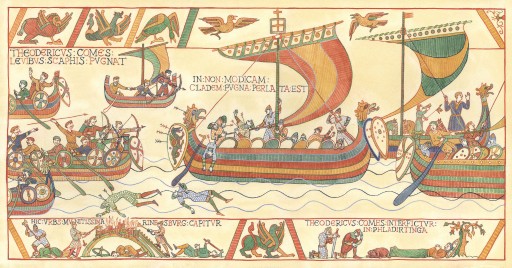 THEODERICVS:COMES:
LEVIBVS:SCAPHIS:PVGNAT
IN:NON:MODICAM:
CLADEM:PVGNA:PERLATA:EST
HIC:VRBS:MVNITISSIMA
RINESBVRG:CAPITVR
THEODERICVS:COMES:INTERFICTVR:
IN:PHLADIRTINGA